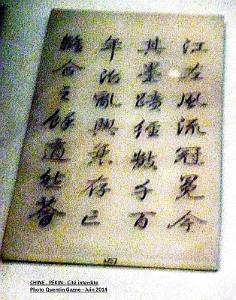 江左風流冠冕今
其墨蹟經數千百
年治亂興棄存己
離合之餘適能薈
四
CHINE - PÉKIN - Cité interdite
Photo Quentin Gazne - Juin 2014